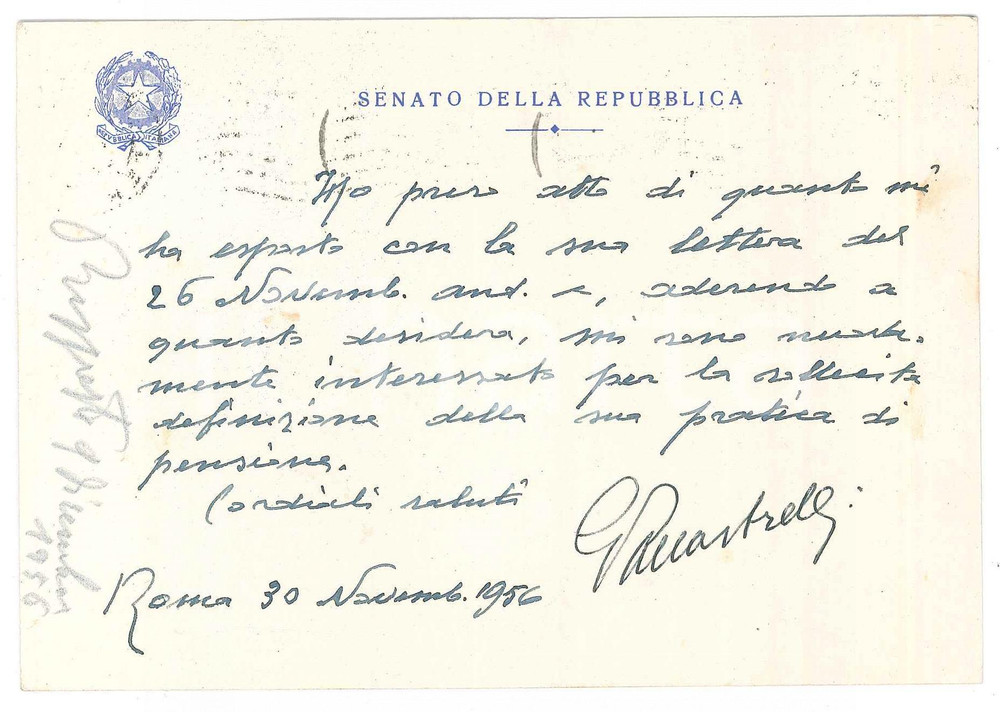 SENATO DELLA REPUBBLICA
REPVBBLICA ITALIANA
Ho preso atto di quanto mi
ha esposto con la sua lettera del
26 Novemb. and. e, aderendo a
quanto desidera, mi sono nuova-
mente interessato per la sollecita
definizione della sua pratica di
pensione.
Cordiali saluti
Roma 30 Novemb. 1956
9 Dicembre
1956